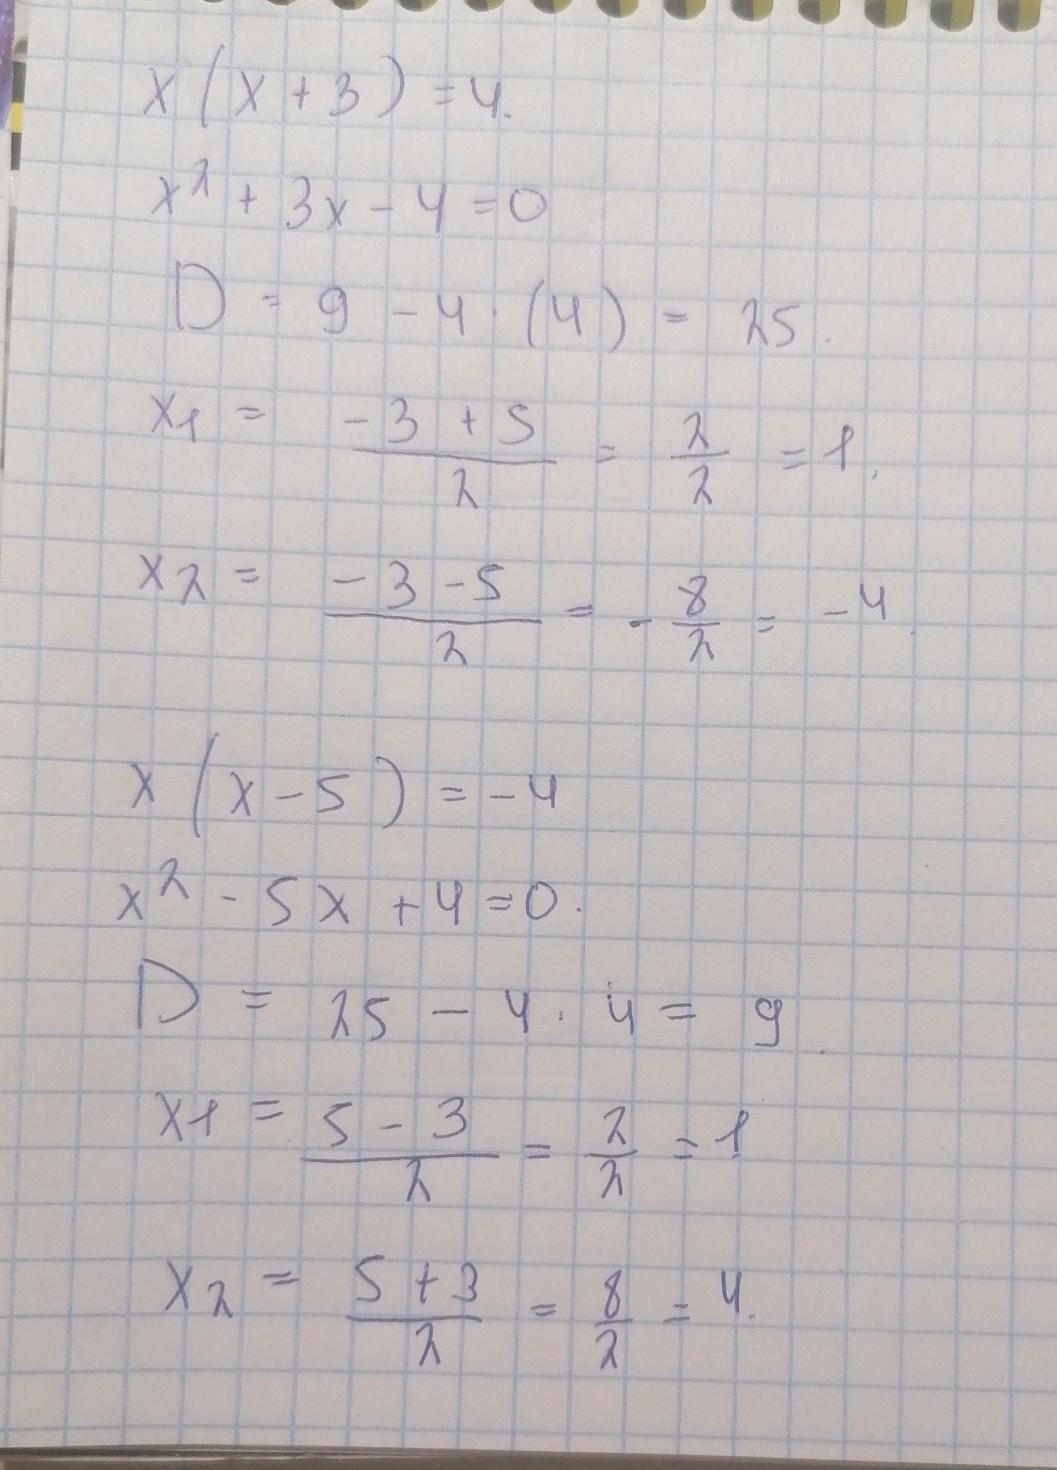 x(x+3)=4.
x²+3x-4=0
D = 9 - 4 · (4) = 25.
x1 = (-3+5)/2 = 2/2 = 1.
x2 = (-3-5)/2 = -8/2 = -4.
x(x-5)=-4
x²-5x+4=0.
D = 25 - 4 · 4 = 9.
x1 = (5-3)/2 = 2/2 = 1
x2 = (5+3)/2 = 8/2 = 4.